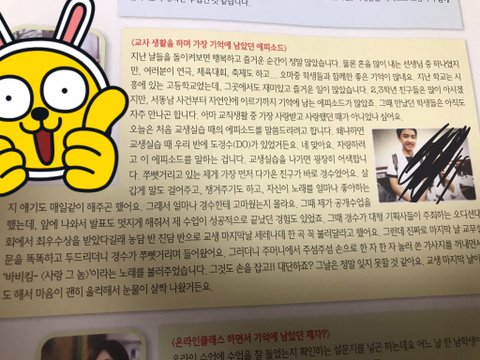 <교사 생활을 하며 가장 기억에 남았던 에피소드>
지난 날들을 돌이켜보면 행복하고 즐거운 순간이 정말 많았습니다. 물론 혼을 많이 내는 선생님 중 하나였지
만, 여러분이 연극, 체육대회, 축제도 하고... 오마중 학생들과 함께한 좋은 기억이 많네요. 지난 학교는 시
흥에 있는 고등학교였는데, 그곳에서도 재미있고 즐거운 일이 많았습니다. 2,3학년 친구들은 많이 아시겠
지만, 서똥남 사건부터 자연인에 이르기까지 기억에 남는 에피소드가 많았죠. 그때 만났던 학생들은 아직도
자주 만나곤 합니다. 아마 교직생활 중 가장 사랑받고 사랑했던 때가 아니었나 싶어요.
오늘은 처음 교생실습 때의 에피소드를 말씀드리려고 합니다. 왜냐하면
교생실습 때 우리 반에 도경수(DO)가 있었거든요. 네 맞아요. 자랑하려
고 이 에피소드를 말하는 겁니다. 교생실습을 나가면 굉장히 어색합니
다. 쭈뼛거리고 있는 제게 가장 먼저 다가온 친구가 바로 경수였어요. 살
갑게 말도 걸어주고, 챙겨주기도 하고, 자신이 노래를 얼마나 좋아하는
지 얘기도 매일같이 해주곤 했어요. 그래서 얼마나 경수한테 고마웠는지 몰라요. 그때 제가 공개수업을
했는데, 앞에 나와서 발표도 멋지게 해줘서 제 수업이 성공적으로 끝났던 경험도 있었죠. 그때 경수가 대형 기획사들이 주최하는 오디션대
회에서 최우수상을 받았다길래 농담 반 진담 반으로 교생 마지막날 세레나데 한 곡 꼭 불러달라고 했어요. 그런데 진짜로 마지막 날 교무실
문을 똑똑하고 두드리더니 경수가 쭈뼛거리며 들어왔어요. 그러더니 주머니에서 주섬주섬 손으로 한 자 한 자 눌러 쓴 가사지를 꺼내면서
'바비킴- 〈사랑 그 놈〉'이라는 노래를 불러주었습니다. 그것도 손을 잡고!! 대단하죠? 그날은 정말 잊지 못할 것 같아요. 교생 마지막 날이
도 해서 마음이 괜히 울컥해서 눈물이 살짝 나왔거든요.
<온라인클래스 하면서 기억에 남았던 제자?>